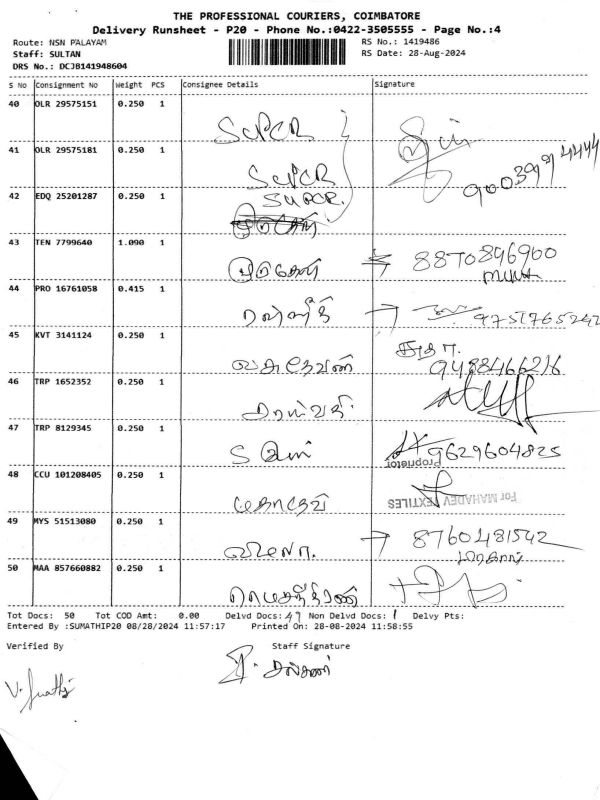 THE PROFESSIONAL COURIERS, COIMBATORE
Delivery Runsheet - P20 - Phone No.:0422-3505555 - Page No.:4
Route: NSN PALAYAM
RS No.: 1419486
Staff: SULTAN
RS Date: 28-Aug-2024
DRS No.: DCJB141948604
S No Consignment No Weight PCS Consignee Details Signature
40 OLR 29575151 0.250 1 SUPCR
41 OLR 29575181 0.250 1 SUPCR
42 EDQ 25201287 0.250 1 SUPCR.
43 TEN 7799640 1.090 1 முருகேஷ் 8870896900
44 PRO 16761058 0.415 1 9751765242
45 KVT 3141124 0.250 1 வாசுதேவன் சுதா. 9488466216
46 TRP 1652352 0.250 1
47 TRP 8129345 0.250 1 9629604825
Proprietor
48 CCU 101208405 0.250 1
For MAHADEV TEXTILES
49 MYS 51513080 0.250 1 விமலா. 8760481542
50 MAA 857660882 0.250 1
Tot Docs: 50 Tot COD Amt: 0.00 Delvd Docs: 49 Non Delvd Docs: 1 Delvy Pts:
Entered By :SUMATHIP20 08/28/2024 11:57:17 Printed On: 28-08-2024 11:58:55
Verified By Staff Signature